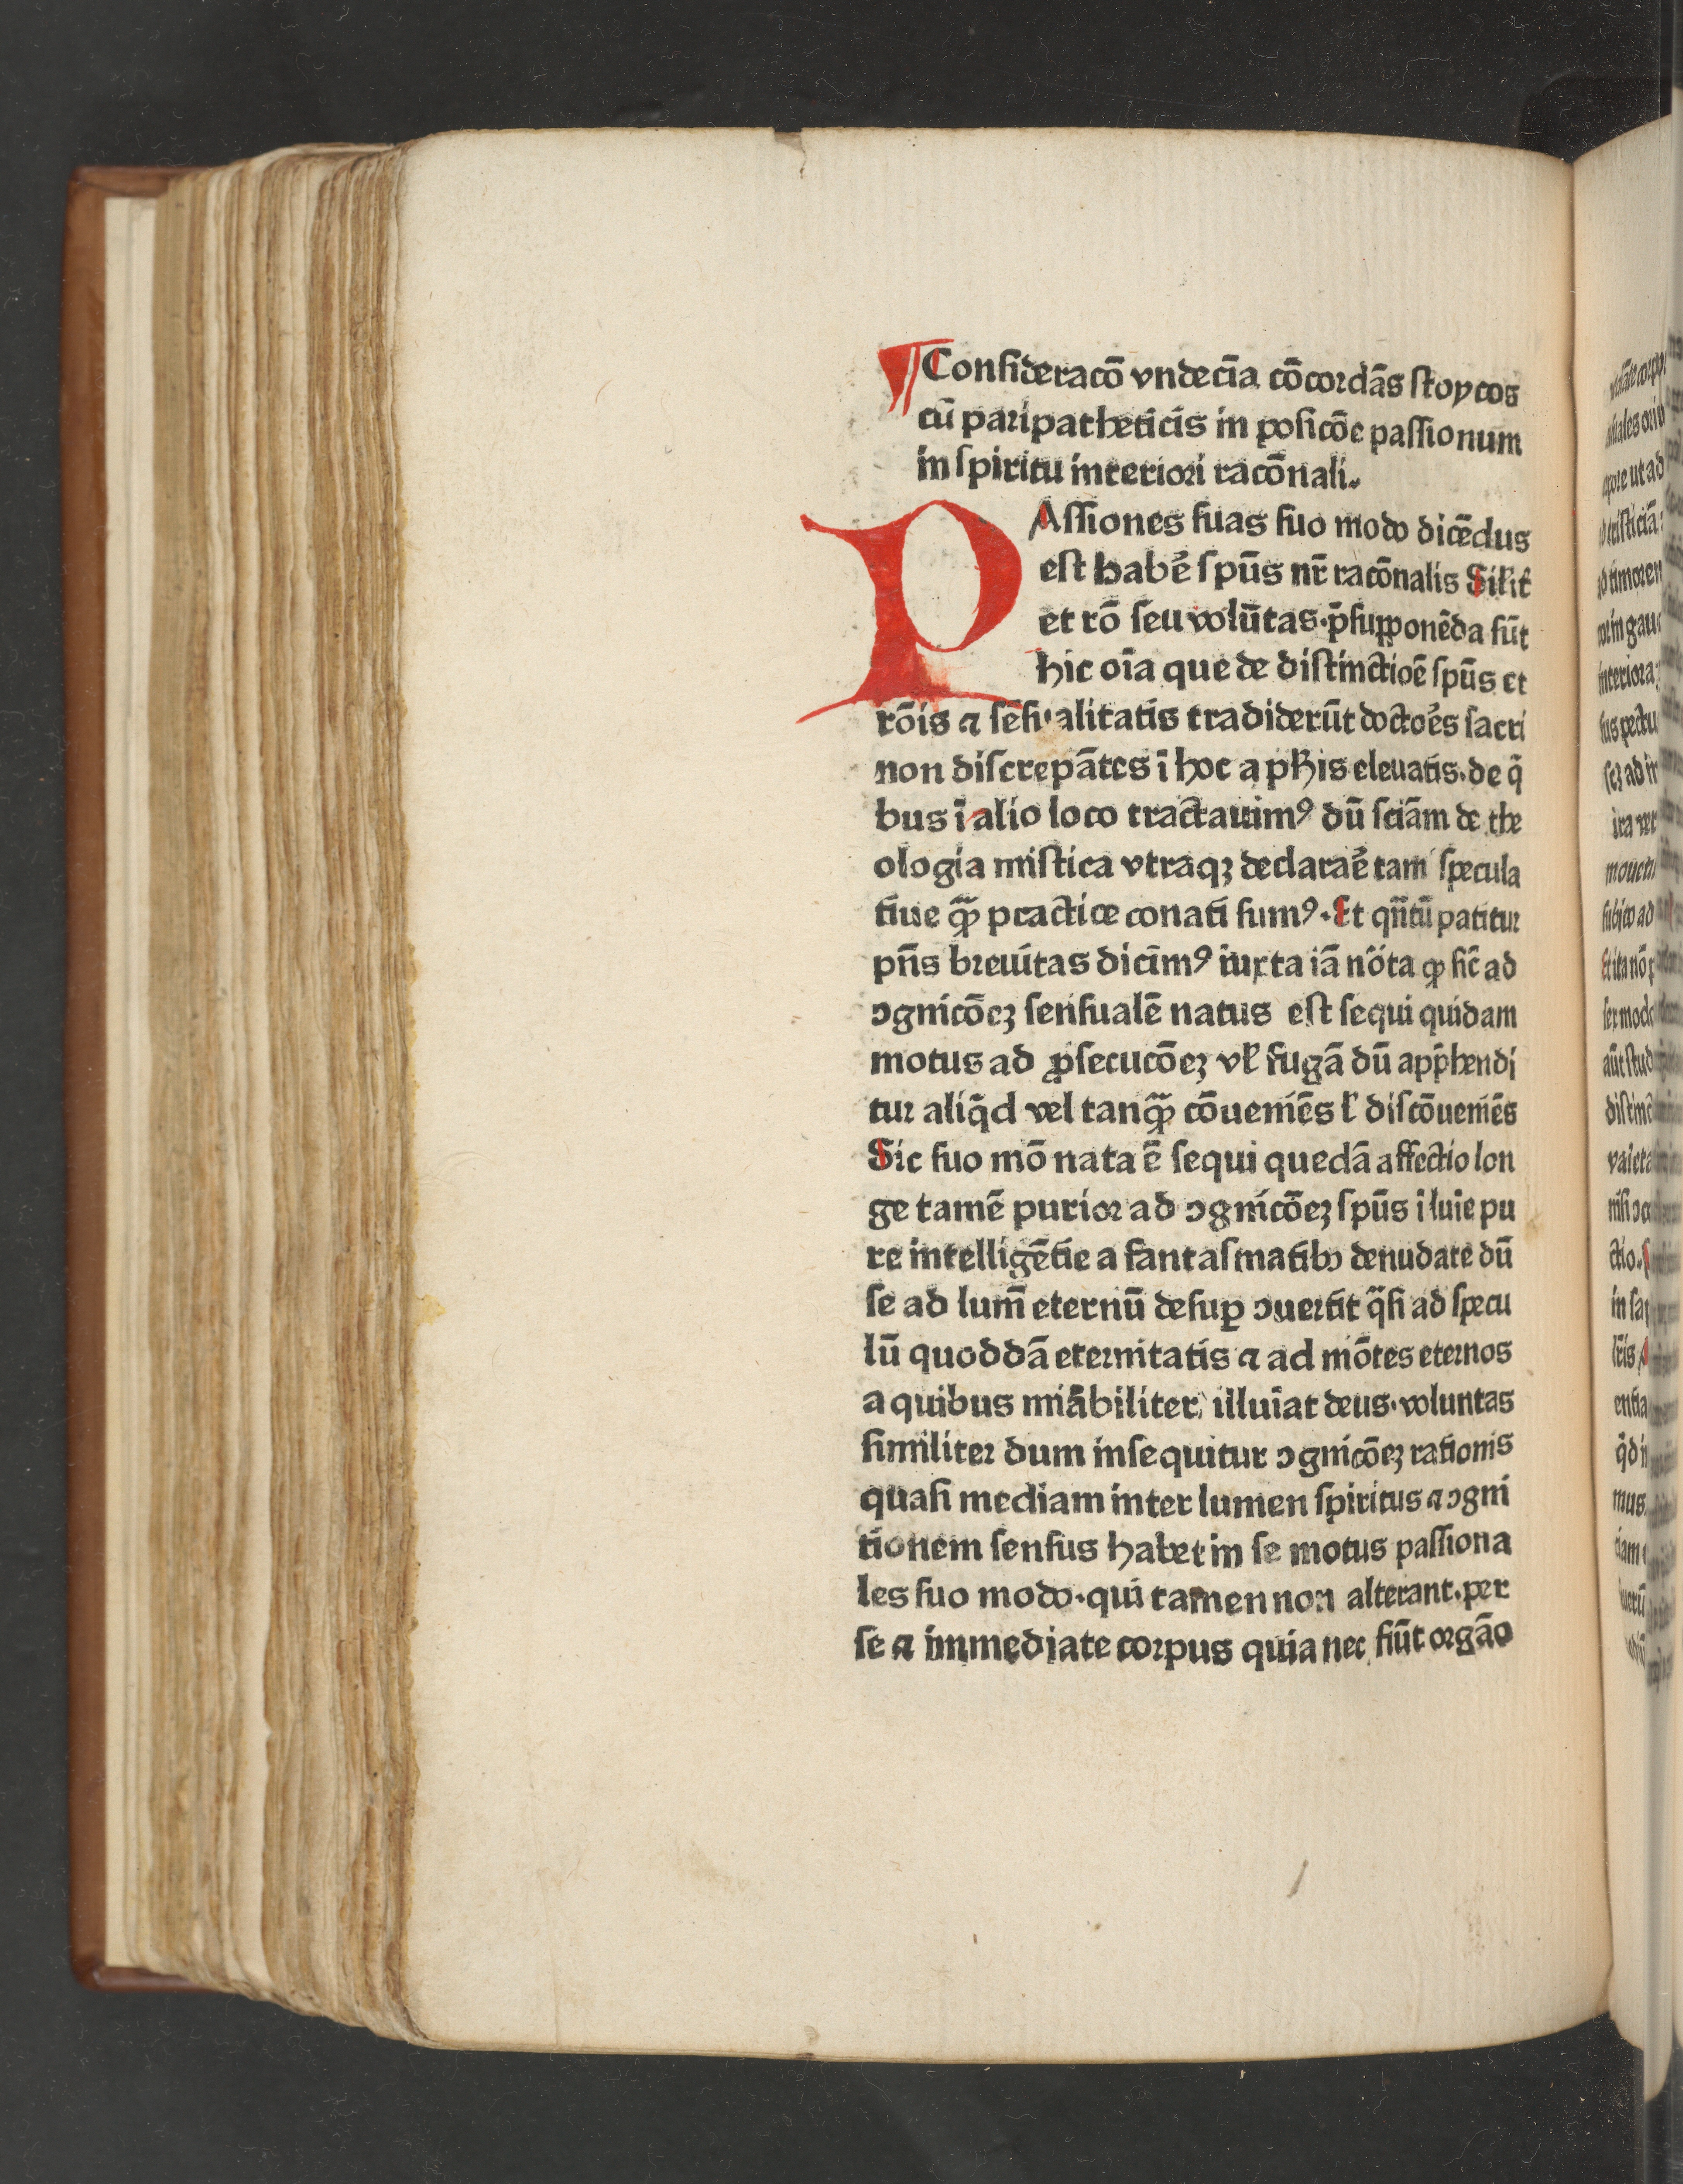 ¶ Conſideracō vndecīa cōcordās ſtoycos
cū paripatheticis in poſicōe paſſionum
in ſpiritu interiori racōnali.
PAſſiones ſuas ſuo modo dicēdus
eſt habē ſpūs nr̄ racōnalis Silit̄
et rō ſeu volūtas·p̄ſupponēda ſūt
hic oīa que de diſtinctioē ſpūs et
rōis ⁊ ſēſualitatis tradiderūt doctoēs ſacri
non diſcrepātes ī hoc a ph̄is eleuatis.de q̄
bus ī alio loco tractauimꝰ dū ſciām de the
ologia miſtica vtraqꝫ declaraē tam ſpecula
tiue qꝫ̄ practice conati ſumꝰ·Et qn̄tū patitur
pn̄s breuitas dicimꝰ iuxta iā nōta ꝙ ſic̄ ad
ꝯgnicōeꝫ ſenſualē natus eſt ſequi quidam
motus ad ꝓſecucōeꝫ vl̄ fugā dū app̄hendi
tur aliq̄d vel tanqꝫ̄ cōueniēs l̄ diſcōueniēs
Sic ſuo mō nata ē ſequi quedā affectio lon
ge tamē purior ad ꝯgnicōeꝫ ſpūs i luīe pu
re intelligētie a fantaſmatibꝫ denudate dū
ſe ad lum̄ eternū deſuꝑ ꝯuertit q̄ſi ad ſpecu
lū quoddā eternitatis ⁊ ad mōtes eternos
a quibus miābiliter illuīat deus·voluntas
ſimiliter dum inſequitur ꝯgnicōeꝫ rationis
quaſi mediam inter lumen ſpiritus ⁊ ꝯgni
tionem ſenſus habet in ſe motus paſſiona
les ſuo modo·qui tamen non alterant.per
ſe ⁊ immediate corpus quia nec fiūt orgāo